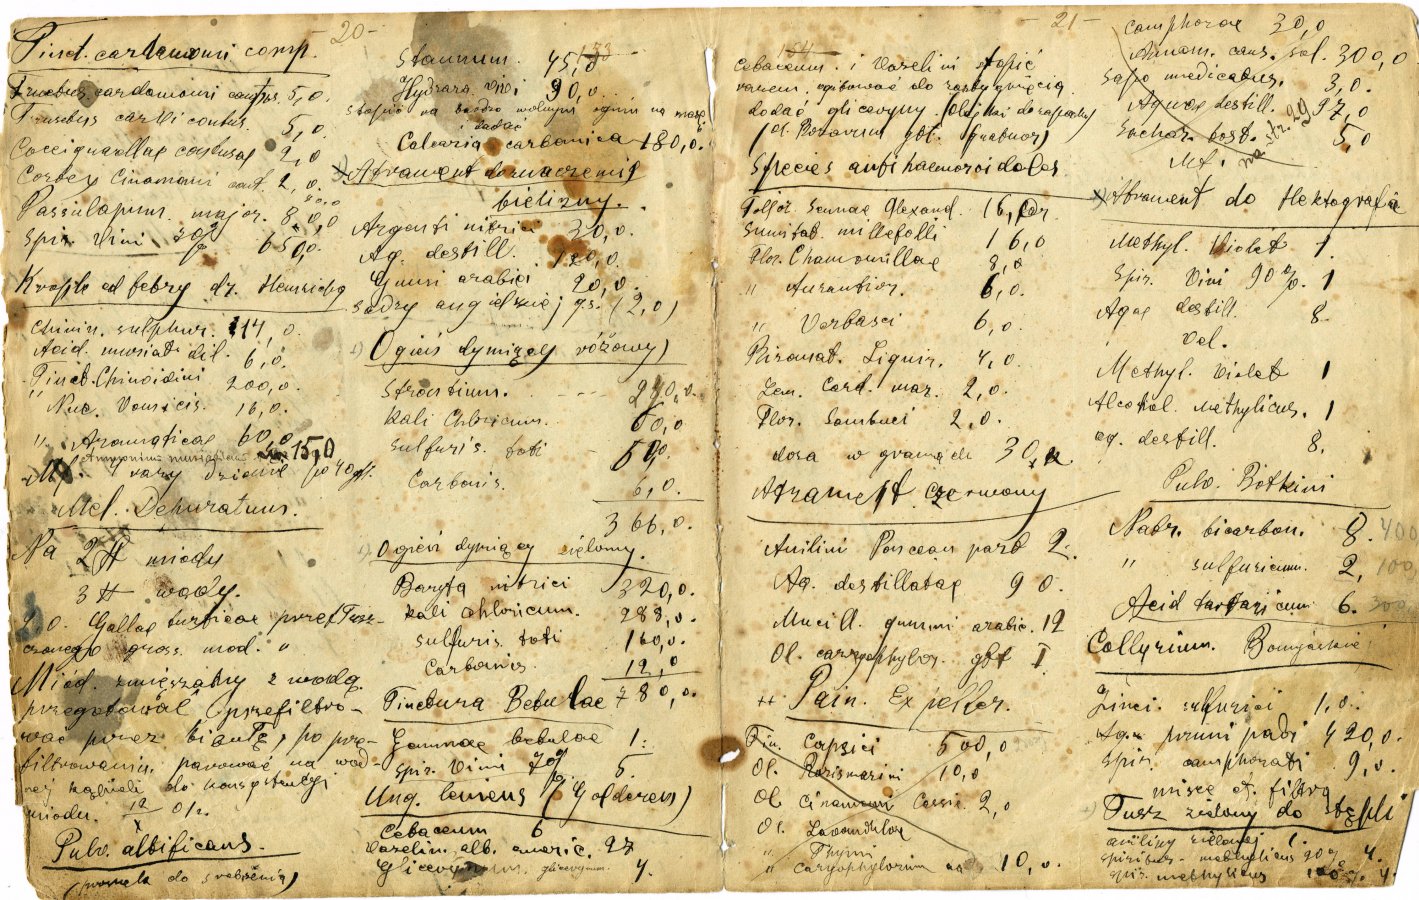 - 20 -
Tinct. cardamomi comp.
Fructus cardamomi contus. 5,0.
Fructus carvi contus. 5,0.
Coccionellae contusae 2,0
Cortex Cinamomi cont. 2,0.
Passularum major. 80,0
Spir. Vini 70% 650,0.
Krople od febry dr. Heinricha
Chinin. sulphur. 14,0.
Acid. muriat. dil. 6,0.
Tinct. Chinoidini 200,0.
" Nuc. Vomicis. 16,0.
" Aromaticae 60,0
Ammonium muriaticum 15,0
3 razy dziennie po 40 gtt.
Mel. Depuratum.
Na 2 ℔ miodu
3 ℔ wody.
20. Gallae turcicae przetłusz-
czonego gross. mod. "
Miód zmięszany z wodą
przegotować (przefiltro-
wać przez bibułę, po prze-
filtrowaniu, parować na wod-
nej kąpieli do konsystencji
miodu.
Pulv. albificans.
(proszek do srebrzenia)
Stannum. 45,0
Hydrarg. vivi 90,0.
stopić na bardzo wolnym ogniu na masę
i dodać
Calcaria carbonica 180,0.
Atrament do znaczenia
bielizny.
Argenti nitrici 30,0.
Aq. destill. 120,0.
Gumi arabici 20,0.
Sadzy angielskiej q.s. (2,0)
Ogień dymiący różowy)
Strontium. - - - 240,0.
Kali Chloricum. 60,0
Sulfuris. loti 60,0.
Carbonis. 6,0.
366,0.
Ogień dymiący zielony.
Baryta nitrici 320,0.
Kali chloricum. 288,0.
Sulfuris loti 160,0.
Carbonis 12,0
780,0.
Tinctura Betulae
Gemmae betulae 1.
Spir. Vini 70% 5.
Ung. leniens (Golderem)
Cetaceum 6
Vazelin. alb. americ. 27
Glicerynum. glicerynum 4.
- 21 -
Cetaceum i Vazelini stopić
razem, ogrzewać do zastygnięcia
dodać gliceryny. (Olejki do zapachu)
(Ol. Rosarum gtt. (quatuor)
Species antihaemoroidales
Folior. Sennae Alexand. 16,0
Sumitat. millefolli 16,0
Flor. Chamomillae 8,0
" Aurantior. 6,0.
" Verbasci 6,0.
Rizomat. Liquir. 4,0.
Sem. Card. mar. 2,0.
Flor. Sambuci 2,0.
dosa w gramach 30,
Atrament czerwony
Anilini Ponceau 2.
Aq. destillatae 90.
Mucill. gummi arabic. 12
Ol. caryophylor. gtt I
++ Pain. Expeller.
Tin. Capsici 500,0
Ol. Rozismarini 10,0
Ol. Cinamom Cassic. 2,0
Ol. Lavandulae
" Thymi
" Caryophylorum aa 10,0.
Camphorae 30,0
Amon. caus. sol. 300,0
Sapo medicatus. 3,0.
Aquae destill. 97,0
Sachar. tost. 5,0
Mf.
na str. 29
Atrament do Hektografu
Methyl. Violet 1.
Spir. Vini 90%. 1
Aqae destill. 8.
Vel.
Methyl. Violet 1
Alcohol. Methylicus. 1
aq. destill. 8.
Pulv. Botkini
Natr. bicarbon. 8. 400
" sulfuricum. 2. 100
Acid tartaricum 6. 300
Collyrium.
Zinci. sulfurici 1,0.
Aq. pruni padi 420,0.
Spir. camphorati 9,0.
misce et. filtra
Tusz zielony do stępli
aniliny zielonej 1.
spiritus methylicus 4.
spir. methylicus 4.